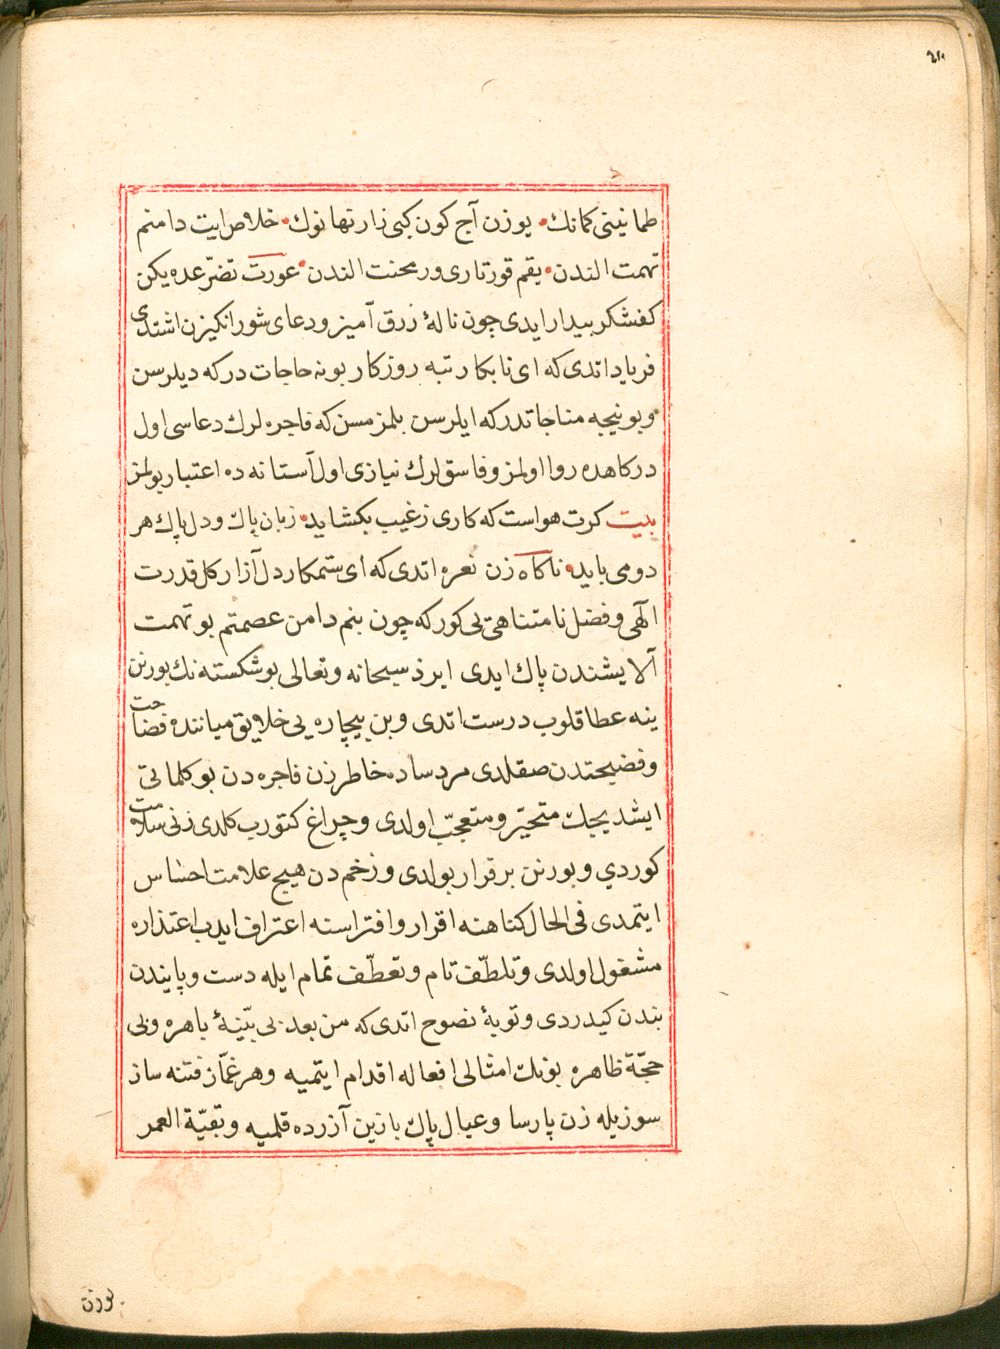 طمانیتی کمانك • یوزن آج كون كبی زارتهانوك • خلاص ایت دامنم
تهمت الندن • یقم قورتاری ور محنت الندن • عورت تضرّعده یكن
كفشكر بیدار ایدی چون نالهٔ زرق آمیز ودعای شورانكیزن اشتدی
فریاد اتدی كه ای نابكار تبه روزكار بو نه حاجات در كه دیلرسن
وبو نیجه مناجاتدر كه ایلرسن بلمزمسن كه فاجره لرك دعاسی اول
دركاهده روا اولمز وفاسقلرك نیازی اول آستانه ده اعتبار بولمز
بیت كرت هواست كه كاری زغیب بكشاید • زبان پاك ودل پاك هر
دو می باید • ناكاه زن نعره اتدی كه ای ستمكار دل آزار كل قدرت
الهی وفضل نامتناهی یی كور كه چون بنم دامن عصمتم بو تهمت
آلایشندن پاك ایدی ایزد سبحانه وتعالی بو شكسته نك بورنن
ینه عطا قلوب درست اتدی وبن بیچاره یی خلایق میاننده فضاحت
وفضیحتدن صقلدی مرد ساده خاطر زن فاجره دن بو كلماتی
ایشدیجك متحیّر ومتعجّب اولدی وچراغ كتورب كلدی زنی سلامت
كوردی وبورنن برقرار بولدی وزخمدن هیچ علامت احساس
ایتمدی فی الحال كناهنه اقرار وافتراسنه اعتراف ایدب اعتذاره
مشغول اولدی وتلطّف تام وتعطّف تمام ایله دست وپایندن
بندن كیدردی وتوبهٔ نصوح اتدی كه من بعد بی بیّنهٔ باهره وبی
حجّة ظاهره بونك امثالی افعاله اقدام ایتمیه وهر غمّاز فتنه ساز
سوزیله زن پارسا وعیال پاك بازین آزرده قلمیه وبقیّة العمر
بورن